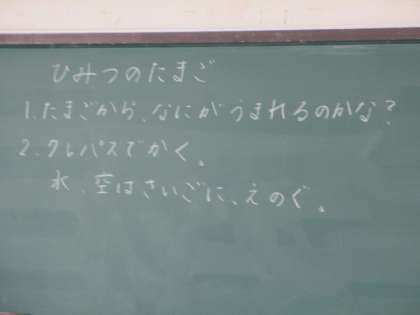 ひみつのたまご
1.たまごから、なにがうまれるのかな?
2.クレパスでかく。
水、空はさいごに、えのぐ。